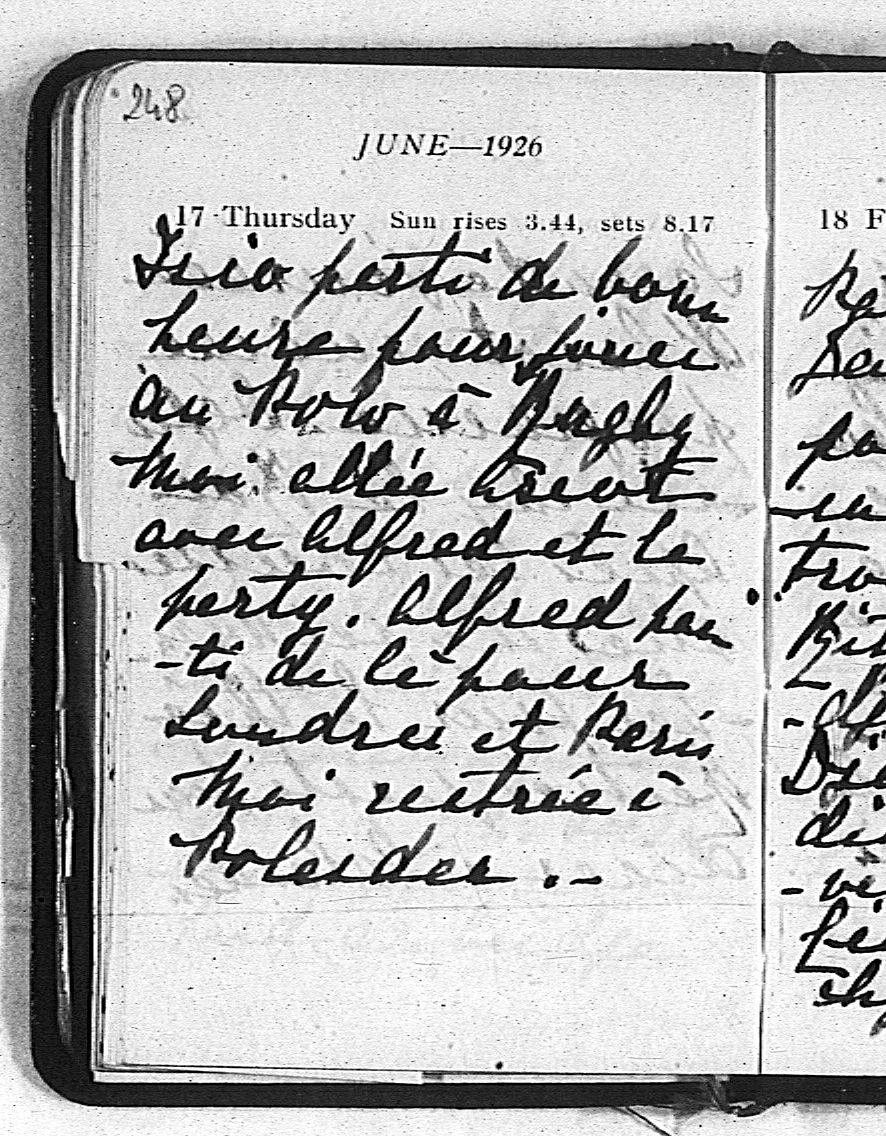 248
JUNE—1926
17 Thursday Sun rises 3.44, sets 8.17
parti de bonn
heure pour jouer
au Polo à Rugby
Moi allée Ascot
avec Alfred et le
party. Alfred par
-ti de là pour
Londres et Paris
Moi rentrée à
Polesden .-
18 F
po
tro
di
-ve